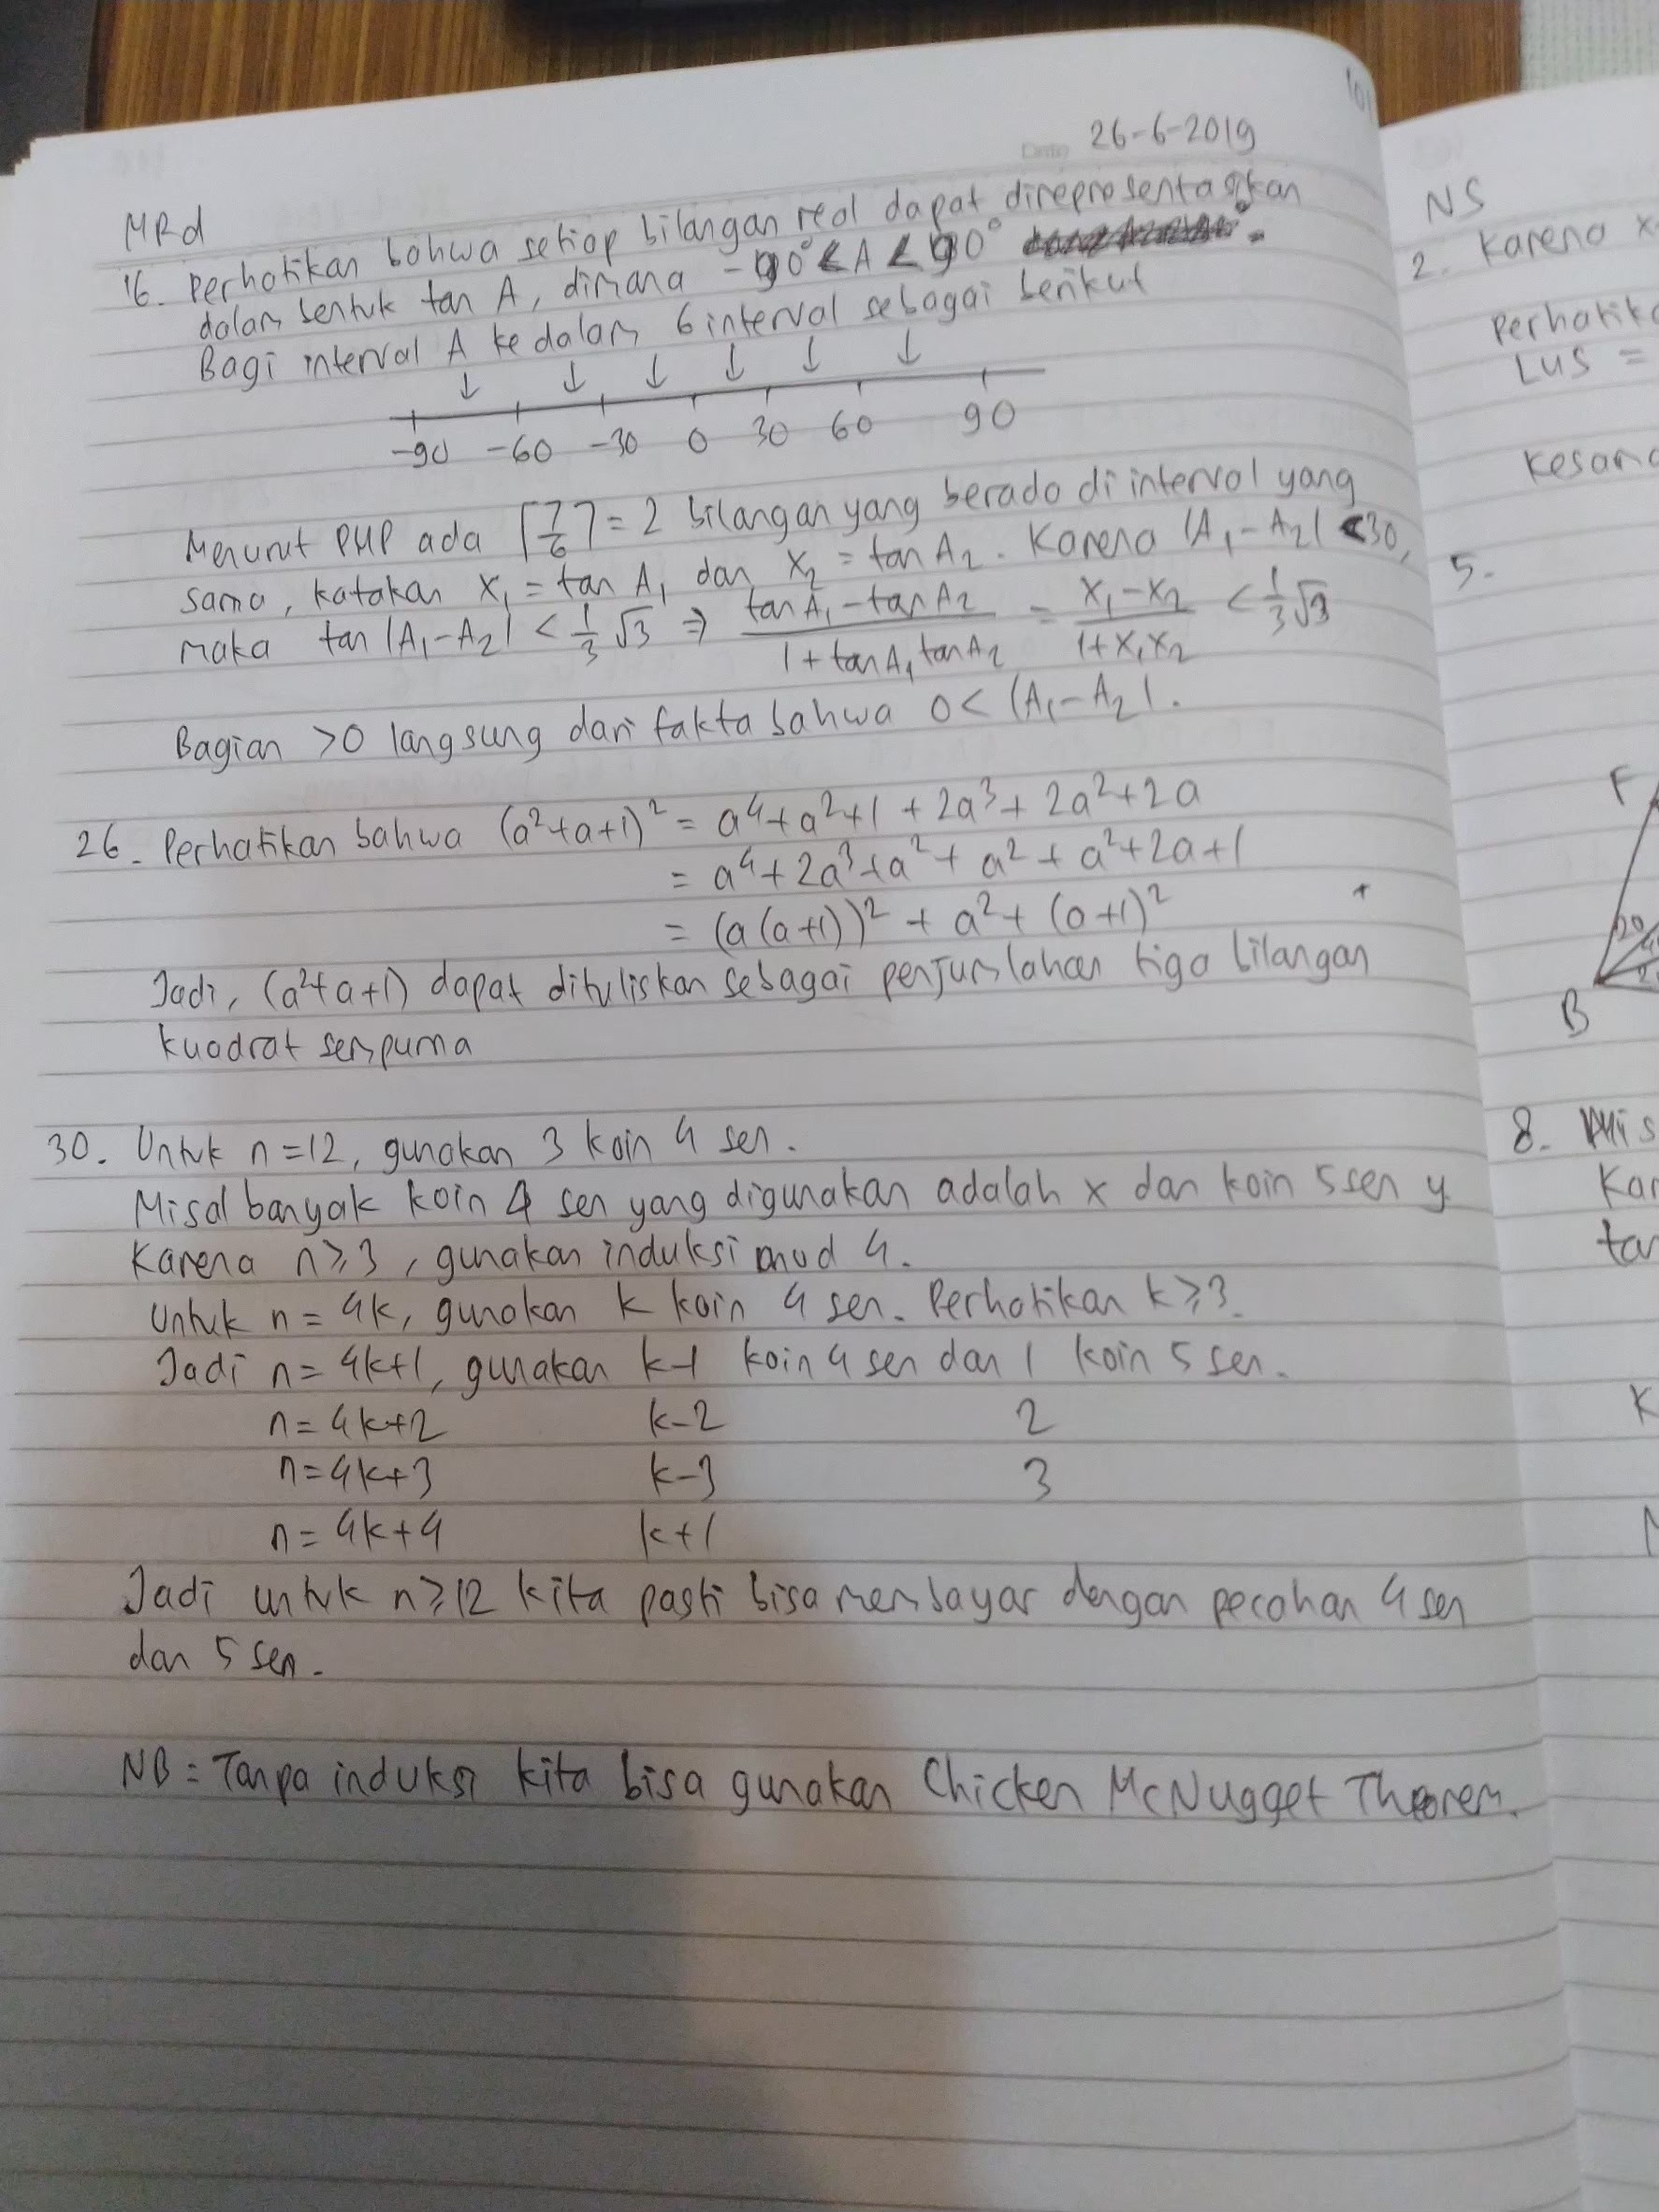 101
Date 26-6-2019
MRd
16. Perhatikan bahwa setiap bilangan real dapat direpresentasikan
dalam bentuk tan A, dimana -90° < A < 90°
Bagi interval A ke dalam 6 interval sebagai berikut
↓ ↓ ↓ ↓ ↓ ↓
-90 -60 -30 0 30 60 90
Menurut PHP ada ⌈7/6⌉ = 2 bilangan yang berada di interval yang
sama, katakan x₁ = tan A₁ dan x₂ = tan A₂. Karena |A₁-A₂| < 30,
maka tan |A₁-A₂| < 1/3 √3 ⇒ (tan A₁ - tan A₂)/(1 + tan A₁ tan A₂) = (x₁-x₂)/(1+x₁x₂) < 1/3 √3
Bagian >0 langsung dari fakta bahwa 0 < |A₁-A₂|.
26. Perhatikan bahwa (a²+a+1)² = a⁴+a²+1+2a³+2a²+2a
= a⁴+2a³+a²+a²+a²+2a+1
= (a(a+1))² + a² + (a+1)²
Jadi, (a²+a+1) dapat dituliskan sebagai penjumlahan tiga bilangan
kuadrat sempurna
30. Untuk n=12, gunakan 3 koin 4 sen.
Misal banyak koin 4 sen yang digunakan adalah x dan koin 5 sen y
Karena n≥3, gunakan induksi mod 4.
Untuk n=4k, gunakan k koin 4 sen. Perhatikan k≥3.
Jadi n=4k+1, gunakan k-1 koin 4 sen dan 1 koin 5 sen.
n=4k+2 k-2 2
n=4k+3 k-3 3
n=4k+4 k+1
Jadi untuk n≥12 kita pasti bisa membayar dengan pecahan 4 sen
dan 5 sen.
NB = Tanpa induksi kita bisa gunakan Chicken McNugget Theorem.
NS
2. Karena x
Perhatik
LUS =
Kesam
5.
F
20
B
8. Mis
Kar
tan
K